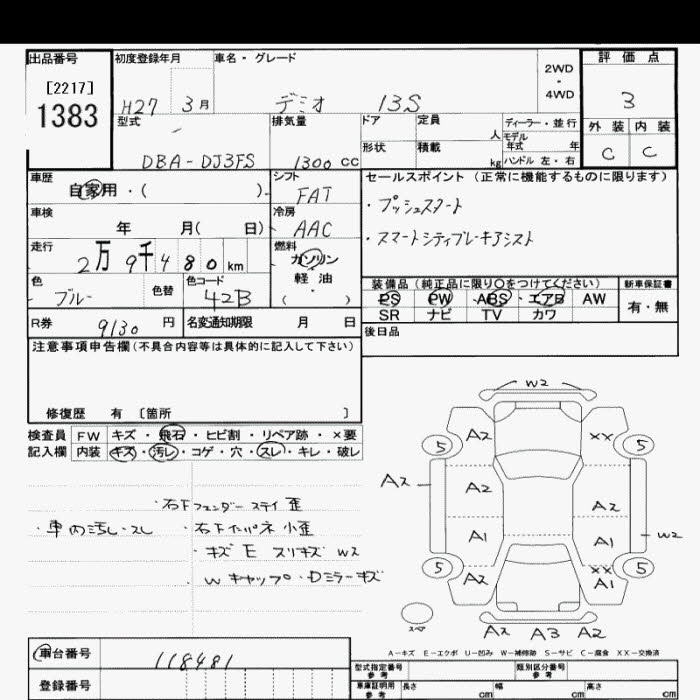 出品番号
[2217]
1383
初度登録年月
H27 3月
車名・グレード
デミオ 13S
2WD
・
4WD
評価点
3
外装 内装
C C
型式
DBA-DJ3FS
排気量
1300 CC
ドア
形状
定員 人
積載 kg
ディーラー・並行
モデル年式 年
ハンドル 左・右
車歴
自家用・( )
シフト
FAT
車検
年 月( 日)
冷房
AAC
走行
2万 9千 4 8 0 km
燃料
ガソリン
軽油
( )
色
ブルー
色替
色コード
42B
R券 9130 円
名変通知期限 月 日
セールスポイント (正常に機能するものに限ります)
・プッシュスタート
・スマートシティブレーキアシスト
装備品 (純正品に限り○をつけてください)
PS PW ABS エアB AW
SR ナビ TV カワ
新車保証書
有・無
後日品
注意事項申告欄(不具合内容等は具体的に記入して下さい)
修復歴 有 〔箇所 〕
検査員記入欄
FW キズ・飛石・ヒビ割・リペア跡・×要
内装 キズ・汚レ・コゲ・穴・スレ・キレ・破レ
・右Fフェンダーステイ歪
・車内汚レ・スレ
・右Fインパネ小歪
・キズE スリキズ W2
W キャップ・Dミラーキズ
W2
A2 XX
5 5
A2 A2 A2
A1 A1 W2
5 XX 5
A2 A1
スペア
A2 A3 A2
A-キズ E-エクボ U-凹み W-補修跡 S-サビ C-腐食 XX-交換済
車台番号 118481
登録番号
型式指定番号 参考
類別区分番号 参考
車庫証明用 参考
長さ cm 幅 cm 高さ cm